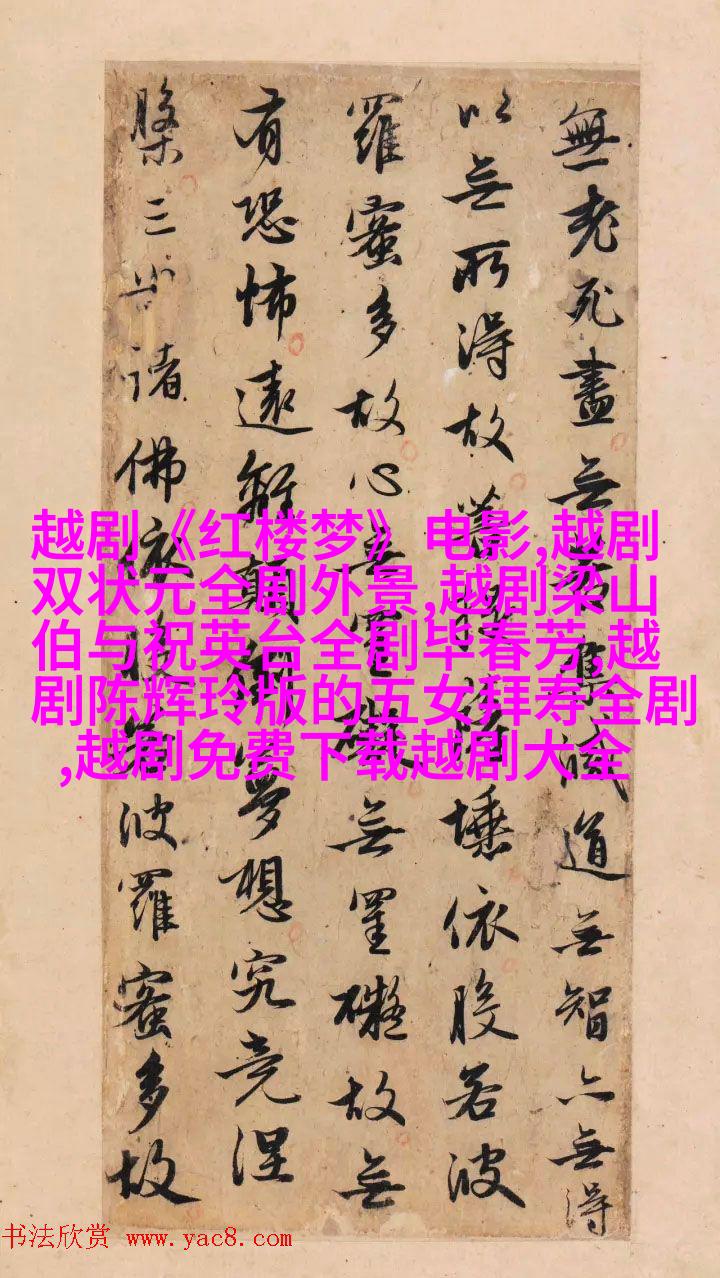 無老死盡無苦集滅道無智亦無得
以無所得故菩提薩埵依般若波
羅蜜多故心無罣礙無罣礙故無
有恐怖遠離顛倒夢想究竟涅
槃三世諸佛依般若波羅蜜多故
越剧《红楼梦》电影,越剧
双状元全剧外景,越剧梁山
伯与祝英台全剧毕春芳,越
剧陈辉玲版的五女拜寿全剧
,越剧免费下载越剧大全
书法欣赏 www.yac8.com